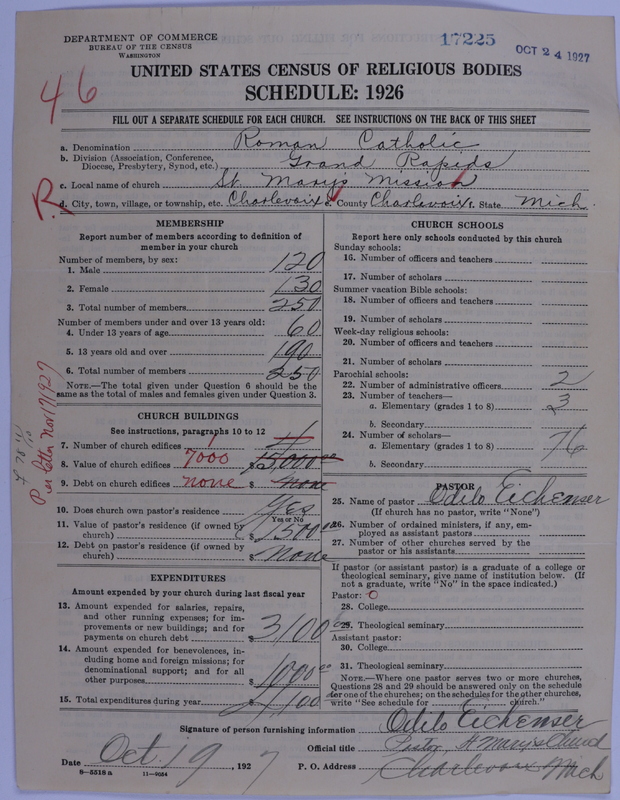 DEPARTMENT OF COMMERCE
BUREAU OF THE CENSUS
WASHINGTON
17225
OCT 24 1927
46
UNITED STATES CENSUS OF RELIGIOUS BODIES
SCHEDULE: 1926
FILL OUT A SEPARATE SCHEDULE FOR EACH CHURCH. SEE INSTRUCTIONS ON THE BACK OF THIS SHEET
a. Denomination Roman Catholic
b. Division (Association, Conference, Diocese, Presbytery, Synod, etc.) Grand Rapids
c. Local name of church St. Mary's Mission
R
d. City, town, village, or township, etc. Charlevoix e. County Charlevoix f. State Mich.
MEMBERSHIP
Report number of members according to definition of
member in your church
Number of members, by sex:
1. Male 120
2. Female 130
3. Total number of members 250
Number of members under and over 13 years old:
4. Under 13 years of age 60
5. 13 years old and over 190
6. Total number of members 250
NOTE.—The total given under Question 6 should be the
same as the total of males and females given under Question 3.
Per letter Nov 17/927
CHURCH BUILDINGS
See instructions, paragraphs 10 to 12
7. Number of church edifices 1
8. Value of church edifices 7000 $ 15,000
9. Debt on church edifices none $ none
10. Does church own pastor's residence Yes
Yes or No
11. Value of pastor's residence (if owned by
church) $ 1500
12. Debt on pastor's residence (if owned by
church) $ none
EXPENDITURES
Amount expended by your church during last fiscal year
13. Amount expended for salaries, repairs,
and other running expenses; for im-
provements or new buildings; and for
payments on church debt $ 3100
14. Amount expended for benevolences, in-
cluding home and foreign missions; for
denominational support; and for all
other purposes $ 1000.00
15. Total expenditures during year $ 4100
CHURCH SCHOOLS
Report here only schools conducted by this church
Sunday schools:
16. Number of officers and teachers
17. Number of scholars
Summer vacation Bible schools:
18. Number of officers and teachers
19. Number of scholars
Week-day religious schools:
20. Number of officers and teachers
21. Number of scholars
Parochial schools:
22. Number of administrative officers 2
23. Number of teachers—
a. Elementary (grades 1 to 8) 3
b. Secondary
24. Number of scholars—
a. Elementary (grades 1 to 8) 76
b. Secondary
PASTOR
25. Name of pastor Odilo Eichenser
(If church has no pastor, write "None")
26. Number of ordained ministers, if any, em-
ployed as assistant pastors
27. Number of other churches served by the
pastor or his assistants
If pastor (or assistant pastor) is a graduate of a college or
theological seminary, give name of institution below. (If
not a graduate, write "No" in the space indicated.)
Pastor: O
28. College
29. Theological seminary
Assistant pastor:
30. College
31. Theological seminary
NOTE.—Where one pastor serves two or more churches,
Questions 28 and 29 should be answered only on the schedule
for one of the churches; on the schedules for the other churches,
write "See schedule for church."
Signature of person furnishing information Odilo Eichenser
Official title Pastor, St Mary's Church
Date Oct. 19, 1927 P. O. Address Charlevoix Mich
8—5518 a 11—9054